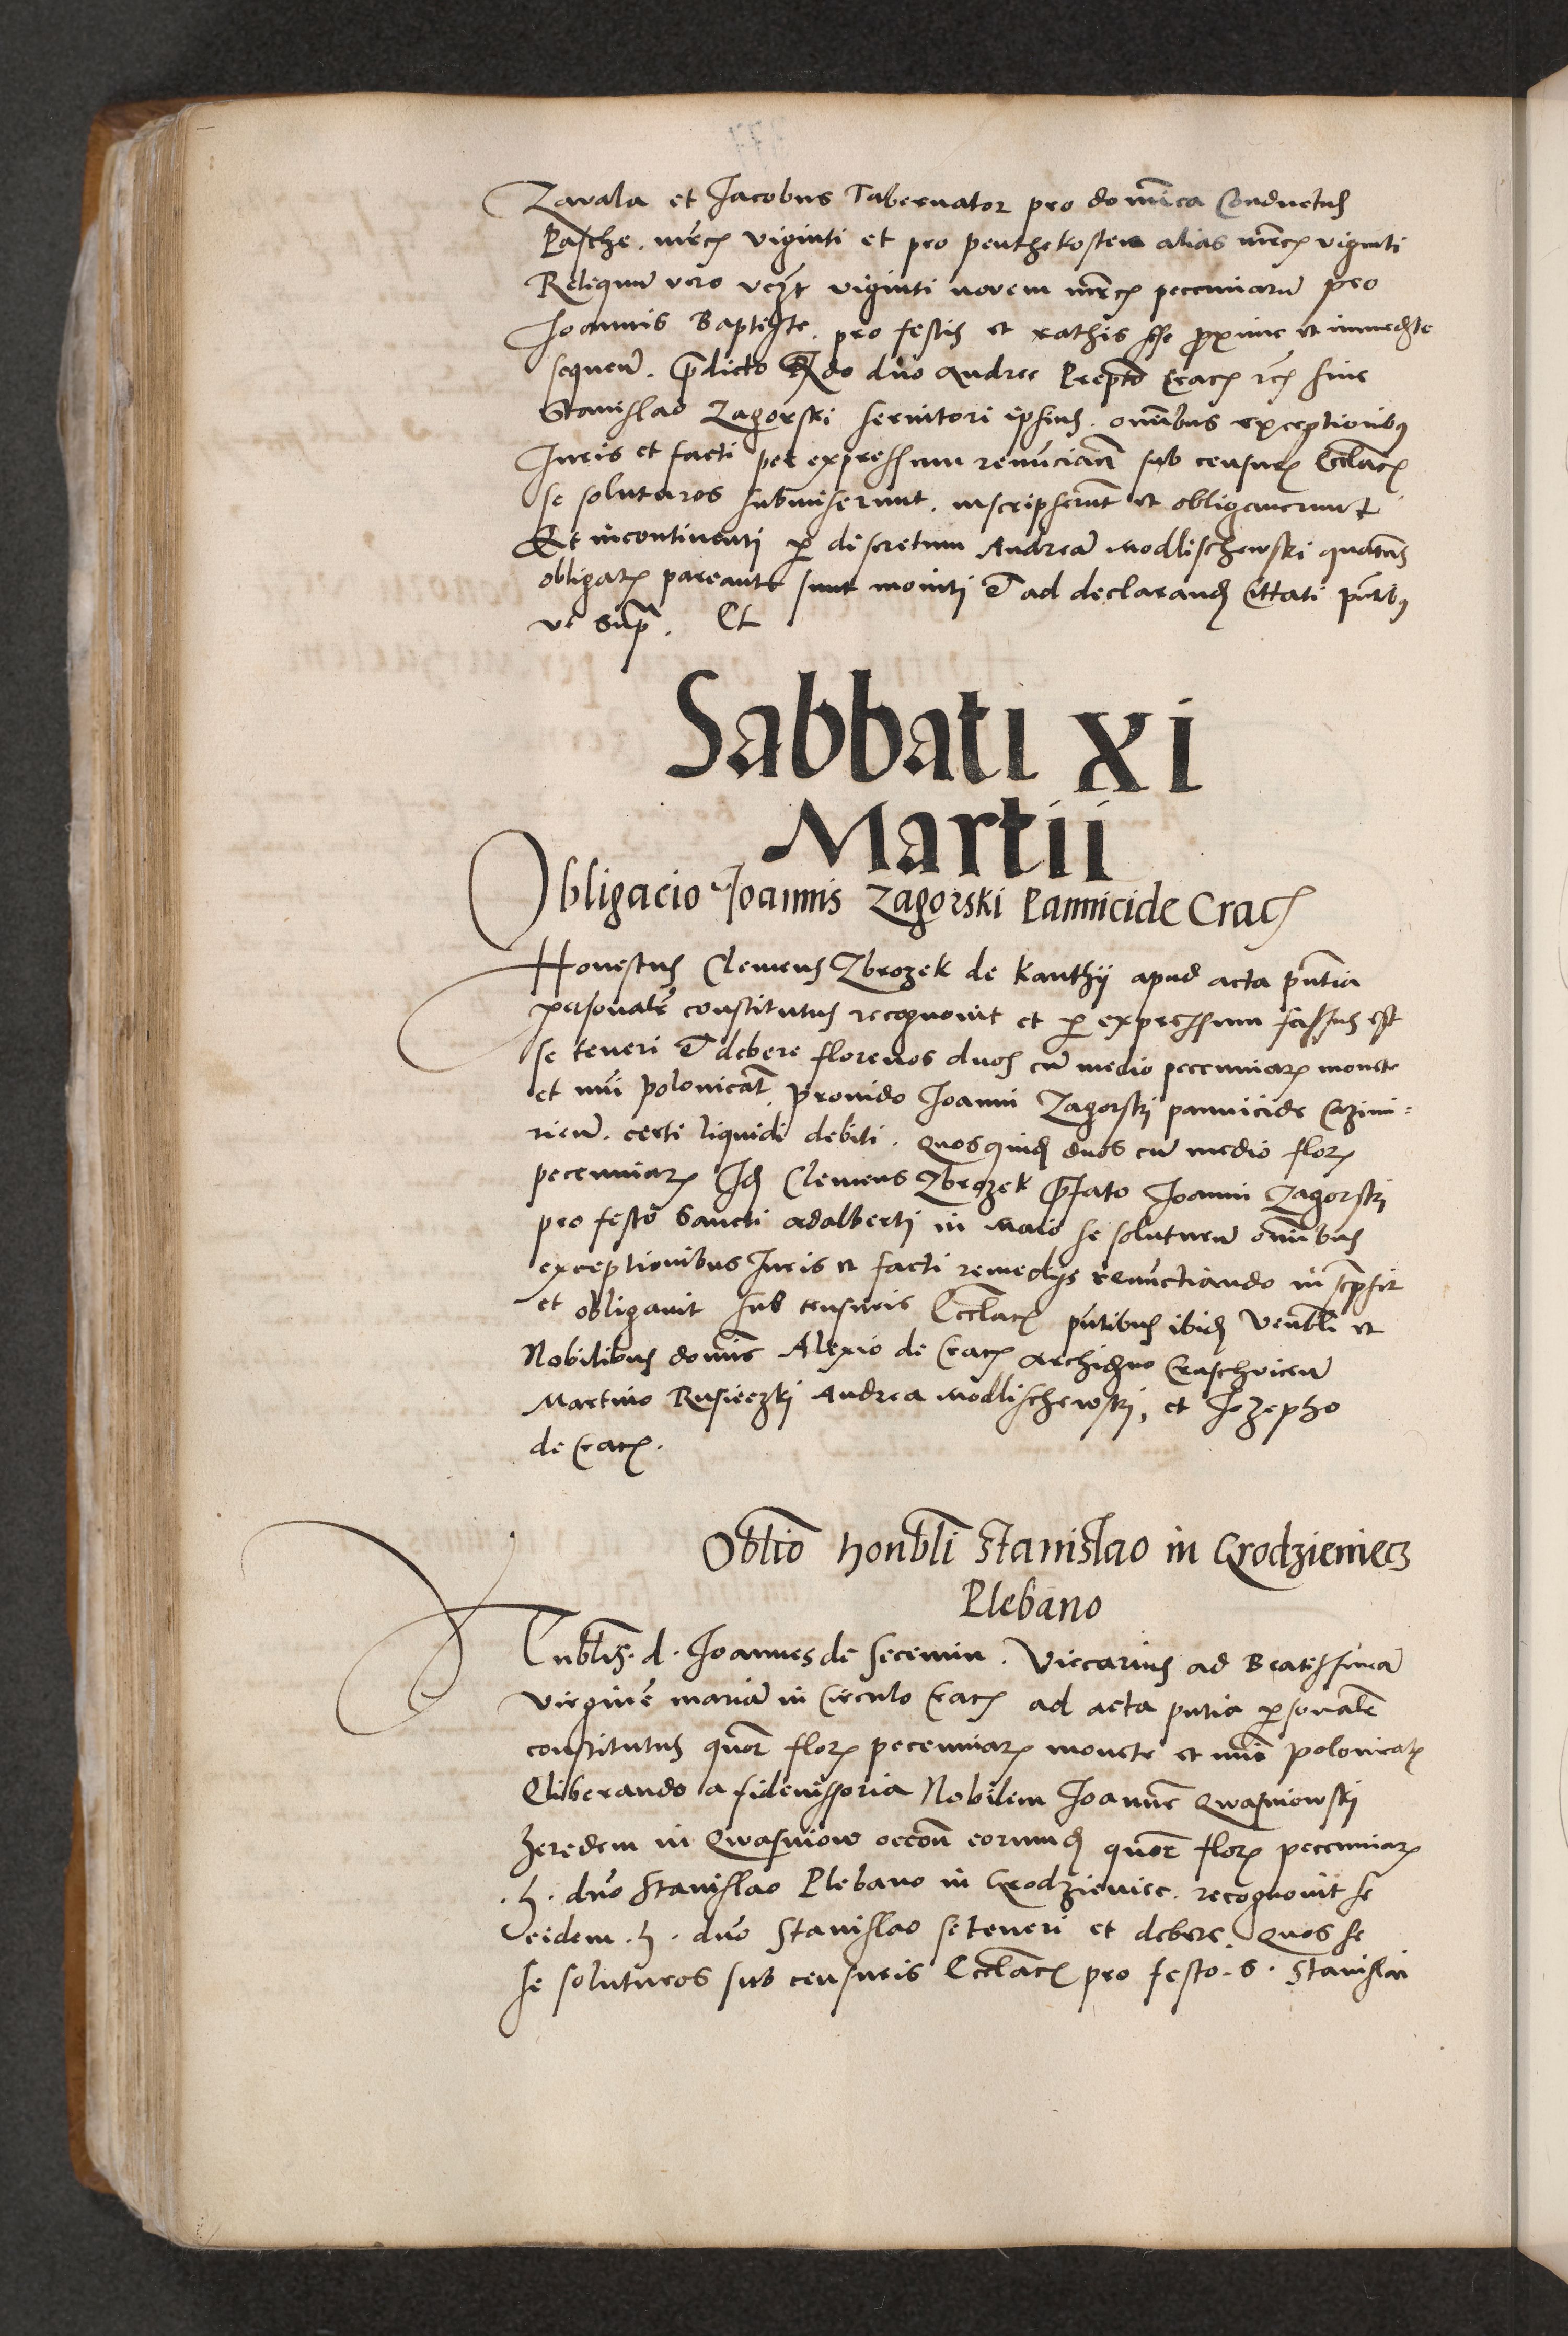 Zawala et Jacobus Tabernator pro domīca Conductus
Pasche . mrcꝭ viginti et pro penthekosten alias mrcꝭ viginti
Reliquū vero viginti novem mrcꝭ pecuniarū pro
Joannis Baptiste . pro festis et rathis proxime et immedte
sequeñ . p̄dicto Rdo dno Andree Prepto Cracꝭ sive
Stanislao Zagorski servitori ipsius . omībus exceptionibꝯ
Juris et facti per expressum renūciañ sub censurꝭ Ecclacꝭ
se soluturos submiserunt . inscripserunt et obligaverunt
Et incontinenti ꝑ discretum Andreā Modlischewski quatūs
obligatꝭ pareant sunt moniti et ad declarandꝭ Cittati pntibꝯ
ut Supᵃ .
Sabbati XI
Martii
Obligacio Joannis Zagorski Pannicide Cracꝭ
Honestus Clemens Zbrozek de Kanthij apud acta pntia
personalr̄ constitutus recognovit et ꝑ expressum fassus est
se teneri et debere florenos duos cū medio pecuniarꝭ monete
et nui polonicaľ . Provido Joanni Zagorski pannicide Cazimi=
rieñ . certi liquidi debiti . quosquidꝭ duos cū medio florꝭ
pecuniarꝭ Idꝭ Clemens Zbrozek p̄fato Joanni Zagorski
pro festo Sancti Adalberti in Maio se soluturū omībus
exceptionibus Juris et facti remedijs renunctiando inscpsit
et obligavit sub censuris Ecclacꝭ pntibus ibidꝭ Venbli et
Nobilibus domīs Alexio de Cracꝭ Archidno Cruschvicieñ
Martino Rusieczki Andrea Modlischewski, et Jozepho
de Cracꝭ .
Oblio honbli Stanislao in Grodzieniecz
Plebano
d . Joannes de Secemin . Viccarius ad Beatissimā
Virginē mariā in Circulo Cracꝭ ad acta pntia ꝑsonalr̄
constitutus quor̄ florꝭ pecuniarꝭ monete et nūi polonicatꝭ
Eliberando a fideiussoria Nobilem Joannē Qwasniowski
heredem in Qwasniow occoñ eorundꝭ quor̄ florꝭ pecuniarꝭ
. h . dno Stanislao Plebano in Grodzieniec . recognovit se
eidem . h . dno Stanislao se teneri et debere . Quos se
se soluturos sub censuris Ecclacꝭ pro festo . S . Stanislai